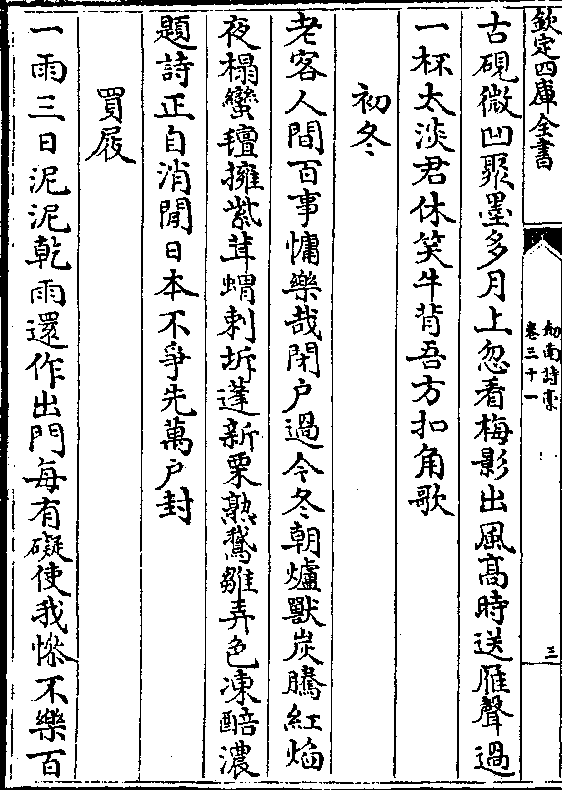 欽定四庫全書
劍南詩稾
卷三十一
三
古硯微凹聚墨多月上忽看梅影出風髙時送雁聲過
一杯太淡君休笑牛背吾方扣角歌
初冬
老客人間百事慵樂哉閉户過今冬朝爐獸炭騰紅焰
夜榻蠻氊擁紫茸蝟刺坼蓬新栗熟鵞雛弄色凍醅濃
題詩正自消閒日本不爭先萬户封
買屐
一雨三日泥泥乾雨還作出門每有礙使我慘不樂百